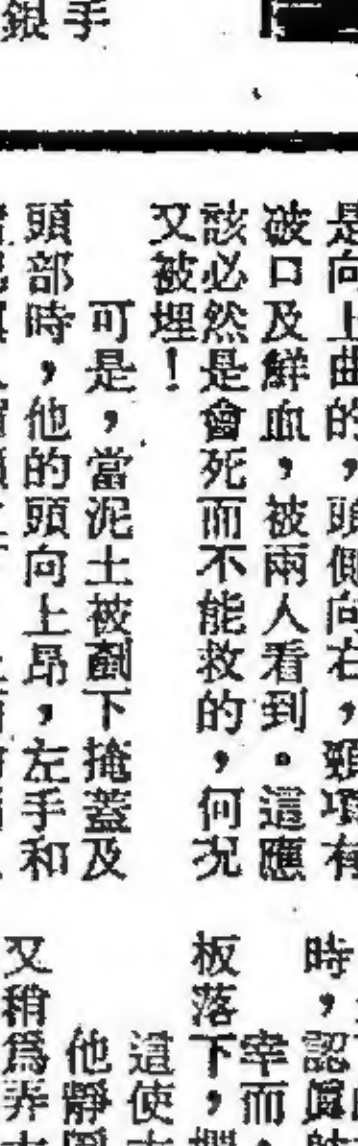 手
銀
是向上曲的，頭側向右，頸項有
破口及鮮血，被兩人看到。這應
該必然是會死而不能救的，何況
又被埋！
可是，當泥土被剷下掩蓋及
頭部時，他的頭向上昂，左手和
時，
認眞
幸而
板落下，
這使
他靜
又稍爲弄